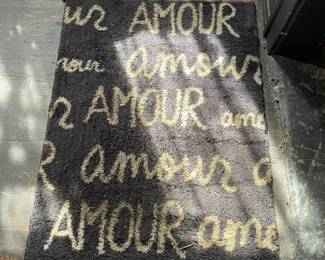 ur AMOUR
mour amour
r AMOUR ame
r amour a
AMOUR ame